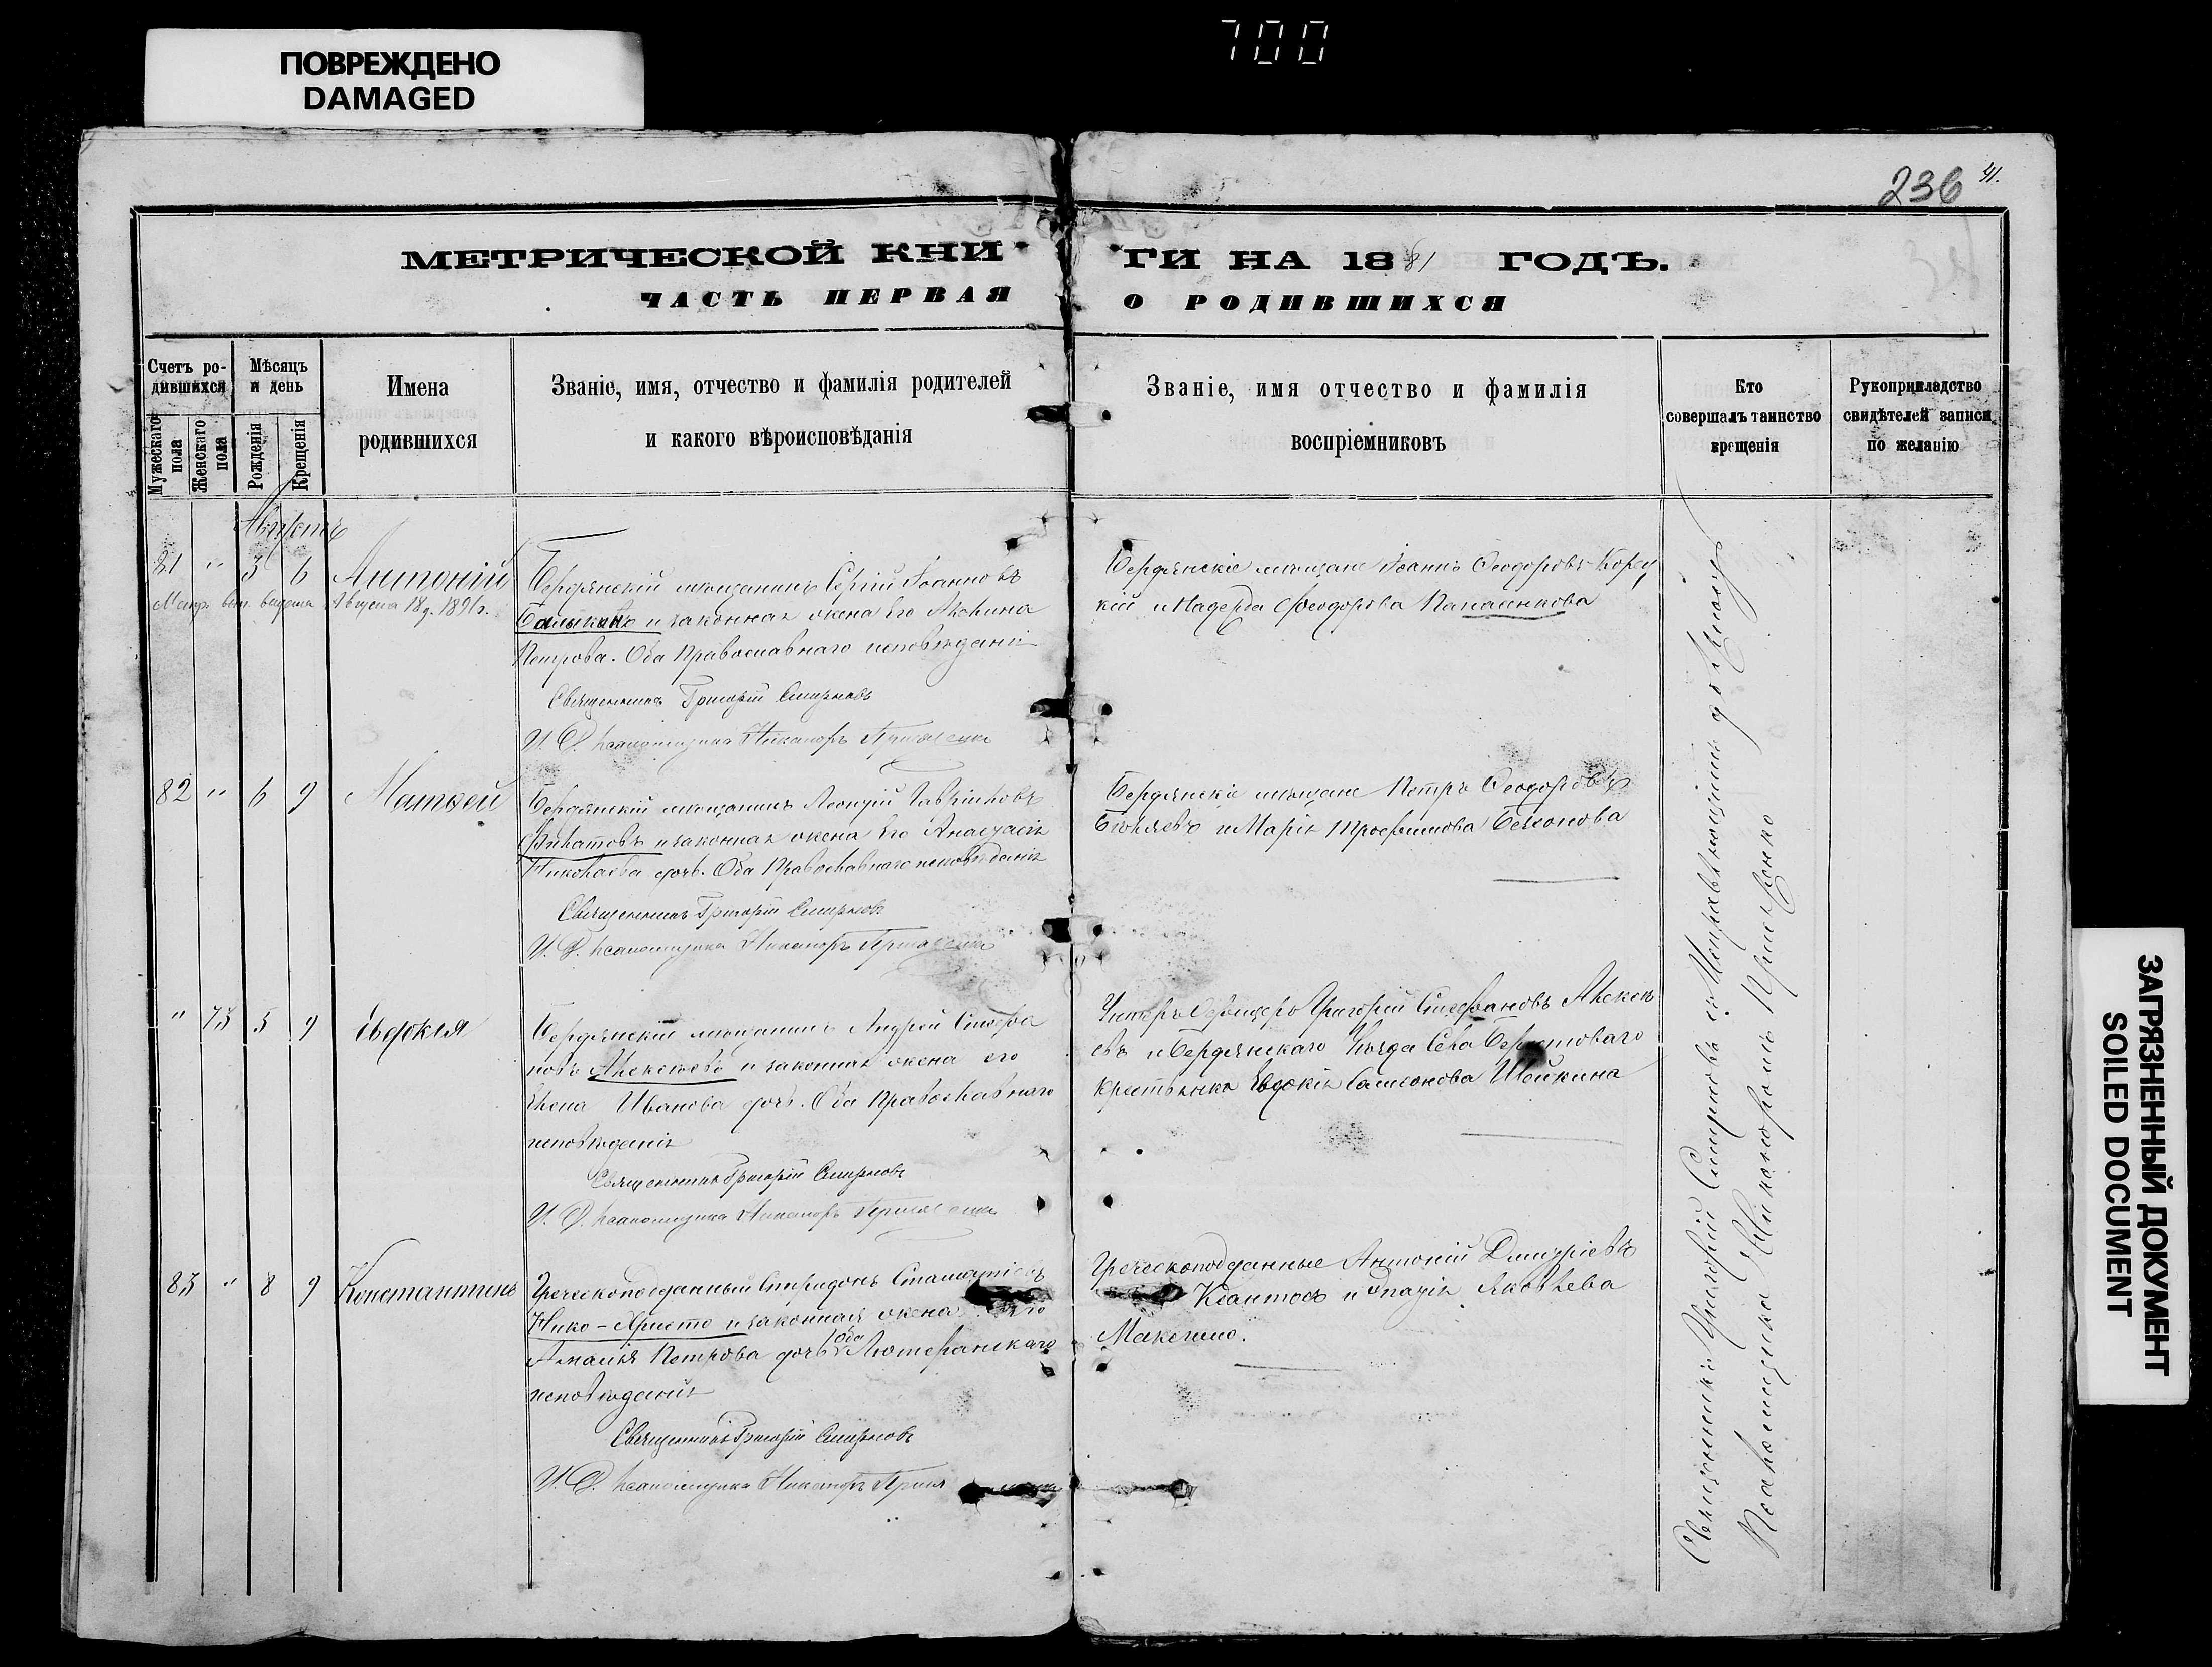 700
ПОВРЕЖДЕНО
DAMAGED
236
41.
МЕТРИЧЕСКОЙ КНИ
ГИ НА 1881 ГОДЪ.
ЧАСТЬ ПЕРВАЯ
О РОДИВШИХСЯ
Счетъ ро-
дившихся
Мужескаго пола
Женскаго пола
Мѣсяцъ
и день
Рожденія
Крещенія
Имена
родившихся
Званіе, имя, отчество и фамилія родителей
и какого вѣроисповѣданія
Званіе, имя отчество и фамилія
воспріемниковъ
Кто
совершалъ таинство
крещенія
Рукоприкладство
свидѣтелей записи
по желанію
Августъ
81 " 3 6 Антоній
Августа 18 д. 1891 г.
Бердянскій мѣщанинъ Сергій Іоанновъ
и законная жена его Акилина
Петрова. Оба Православнаго исповѣданія
Священникъ Григорій Смирновъ
И. Д. Псаломщика Никаноръ
Бердянскіе мѣщане Іоаннъ Ѳеодоровъ
кій и Надежда Ѳеодорова
82 " 6 9 Матѳей
Бердянскій мѣщанинъ Леонтій
Филатовъ и законная жена его Анастасія
Николаева дочь. Оба Православнаго исповѣданія
Священникъ Григорій Смирновъ
И. Д. Псаломщика Никаноръ
Бердянскіе мѣщане Петръ Ѳеодоровъ
и Марія Трофимова
" 73 5 9 Евдокія
Бердянскій мѣщанинъ Андрей Стефа
новъ Алексѣевъ и законная жена его
Елена Иванова дочь. Оба Православнаго
исповѣданія
Священникъ Григорій Смирновъ
И. Д. Псаломщика Никаноръ
Унтеръ Офицеръ Григорій Стефановъ Алексѣ
евъ и Бердянскаго уѣзда Села Берестоваго
крестьянка Евдокія Самсонова Шейкина
83 " 8 9 Константинъ
Греческоподданный Спиридонъ
Нико-Христо и законная жена его
Амалія Петрова дочь Оба Лютеранскаго
исповѣданія
Священникъ Григорій Смирновъ
И. Д. Псаломщика Никаноръ
Греческоподданные Антоній Дмитріевъ
и Яковлева
Священникъ Григорій Смирновъ съ Исправляющимъ должность
Псаломщика Никаноромъ
ЗАГРЯЗНЕННЫЙ ДОКУМЕНТ
SOILED DOCUMENT